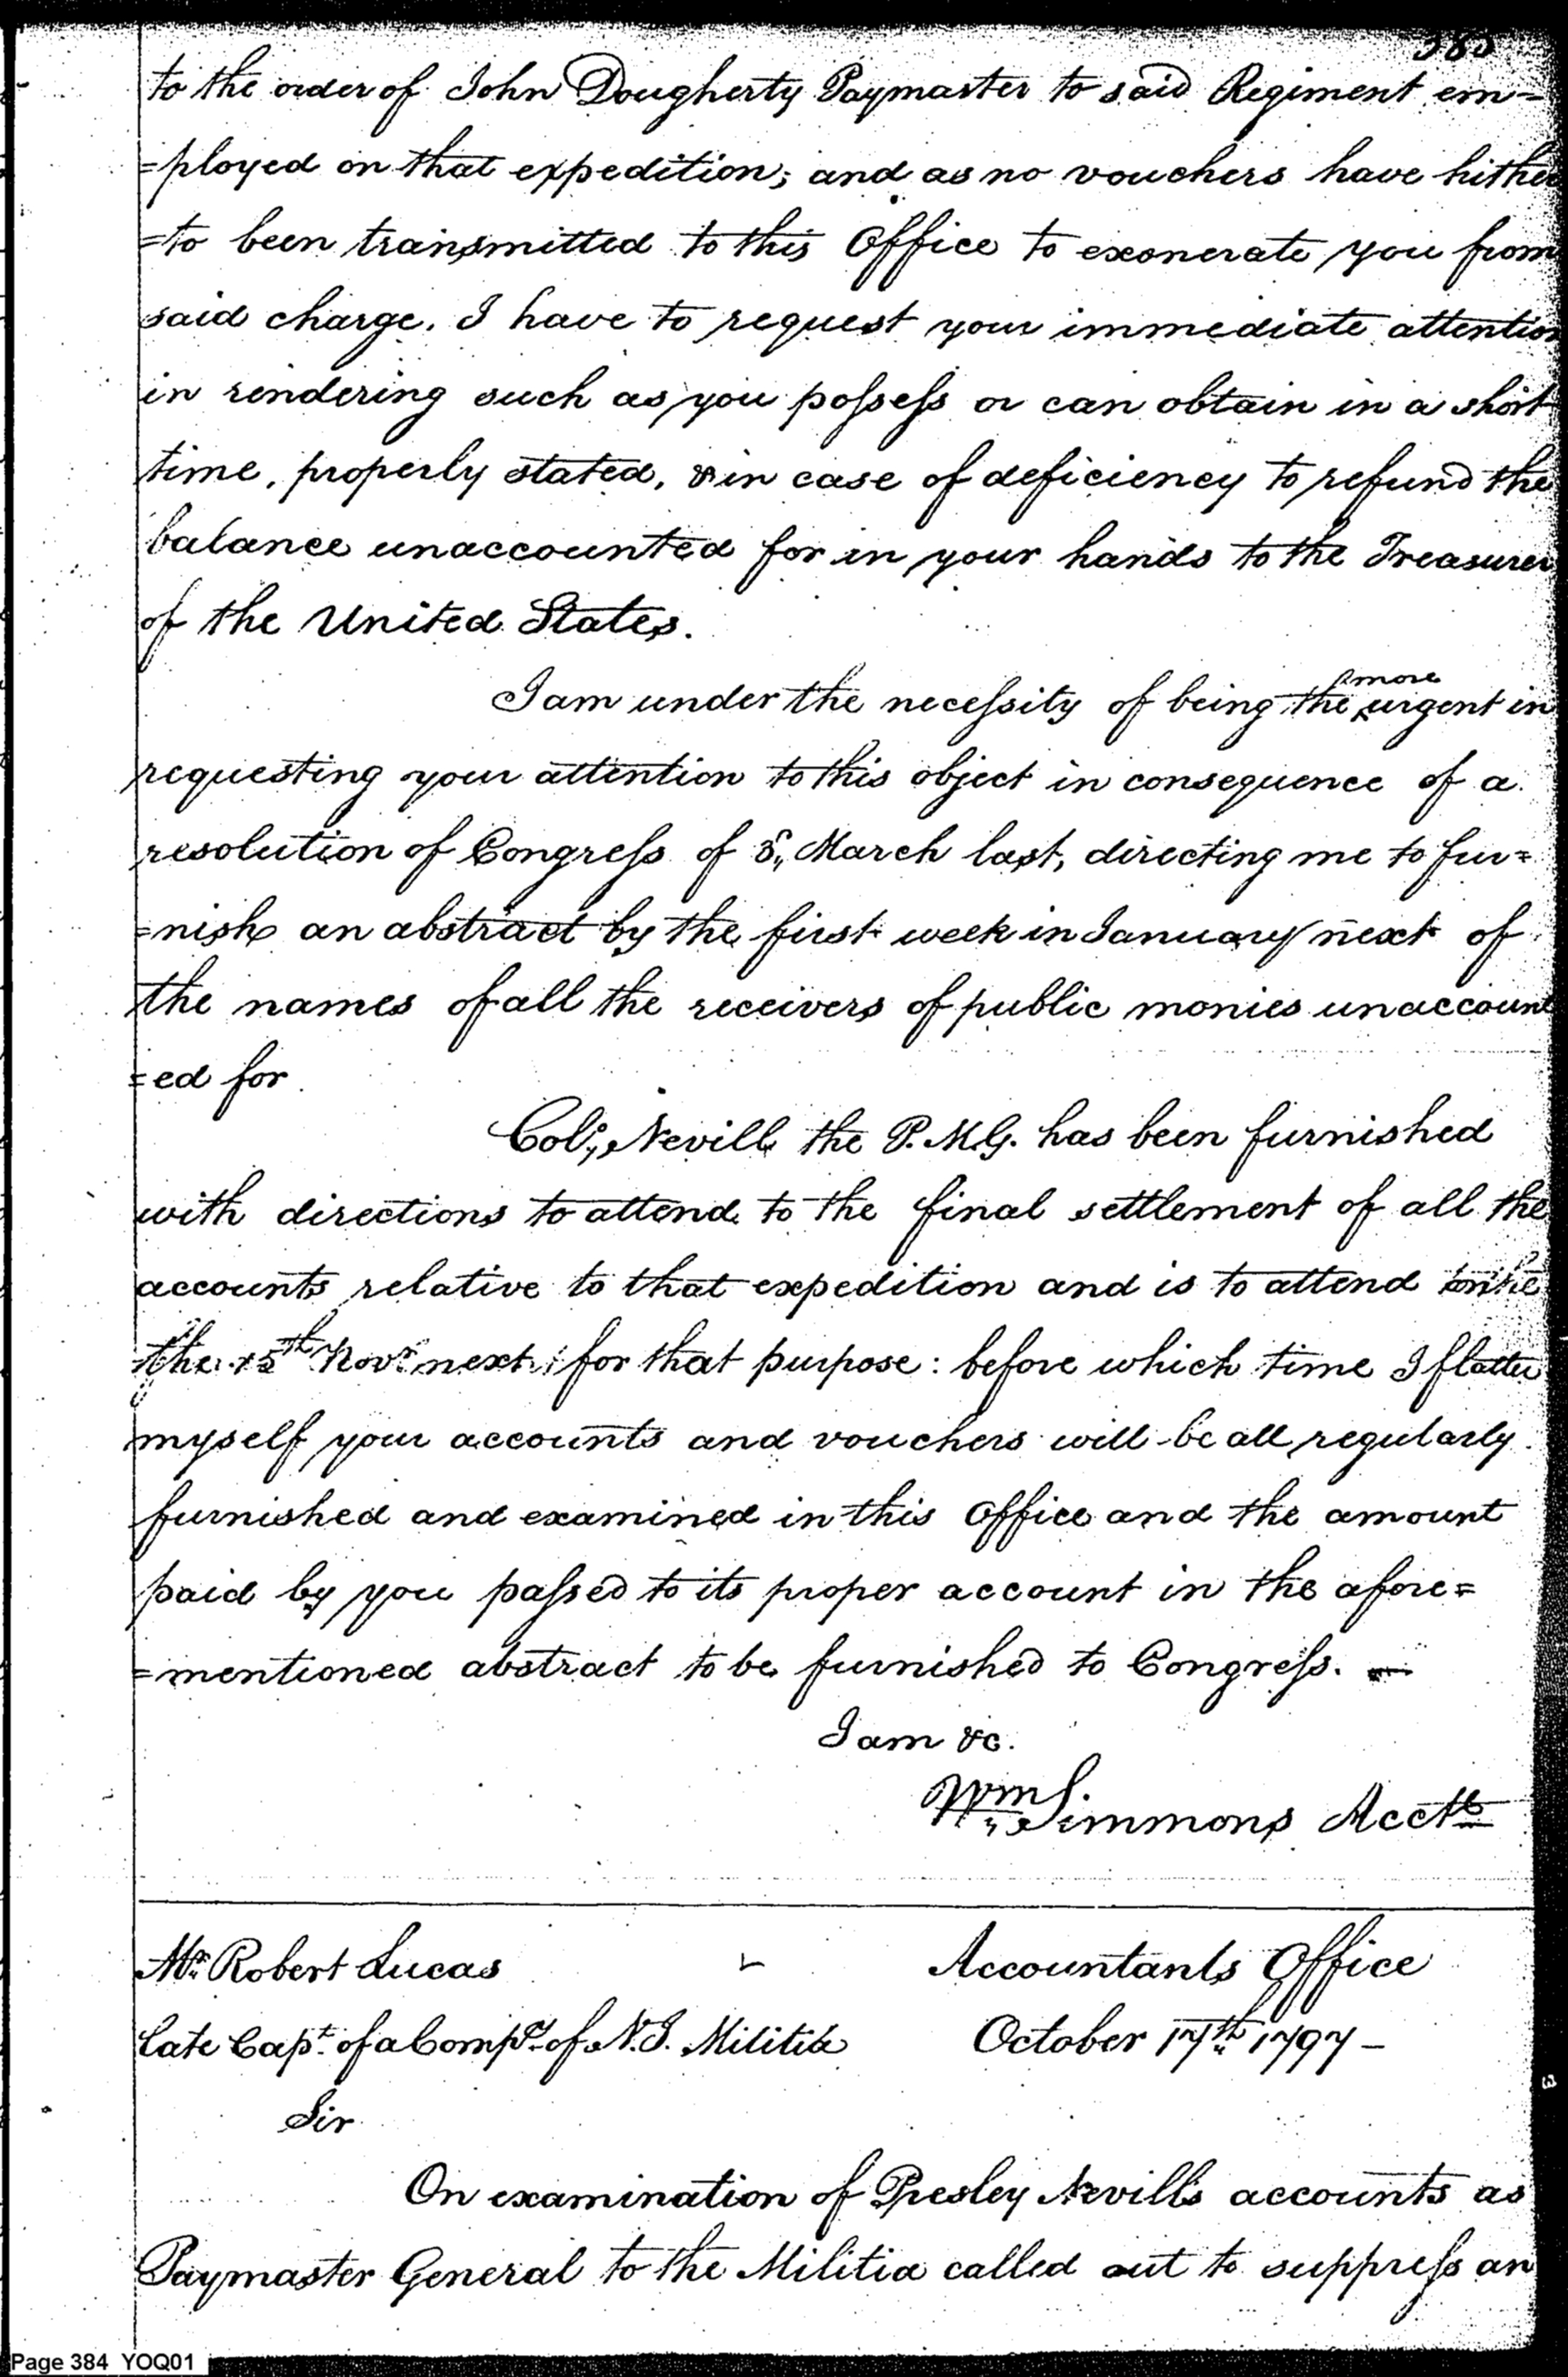 383
to the order of John Dougherty Paymaster to said Regiment em-
=ployed on that expedition; and as no vouchers have hither
=to been transmitted to this Office to exonerate you from
said charge. I have to request your immediate attention
in rendering such as you possess or can obtain in a short
time, properly stated, & in case of deficiency to refund the
balance unaccounted for in your hands to the Treasurer
of the United States.
I am under the necessity of being the more urgent in
requesting your attention to this object in consequence of a
resolution of Congress of 3,, March last, directing me to fur=
=nish an abstract by the first week in January next of
the names of all the receivers of public monies unaccount
=ed for
Col; Nevill the P.M.G. has been furnished
with directions to attend to the final settlement of all the
accounts relative to that expedition and is to attend
the 15th Novr next for that purpose: before which time I flatter
myself your accounts and vouchers will be all regularly
furnished and examined in this Office and the amount
paid by you passed to its proper account in the afore=
=mentioned abstract to be furnished to Congress. —
I am &c.
Wm Simmons Acctt
Mr. Robert Lucas Accountants Office
late Capt. of a Compy. of N.J. Militia October 17th 1797 –
Sir
On examination of Presley Nevills accounts as
Paymaster General to the Militia called out to suppress an
Page 384 YOQ01